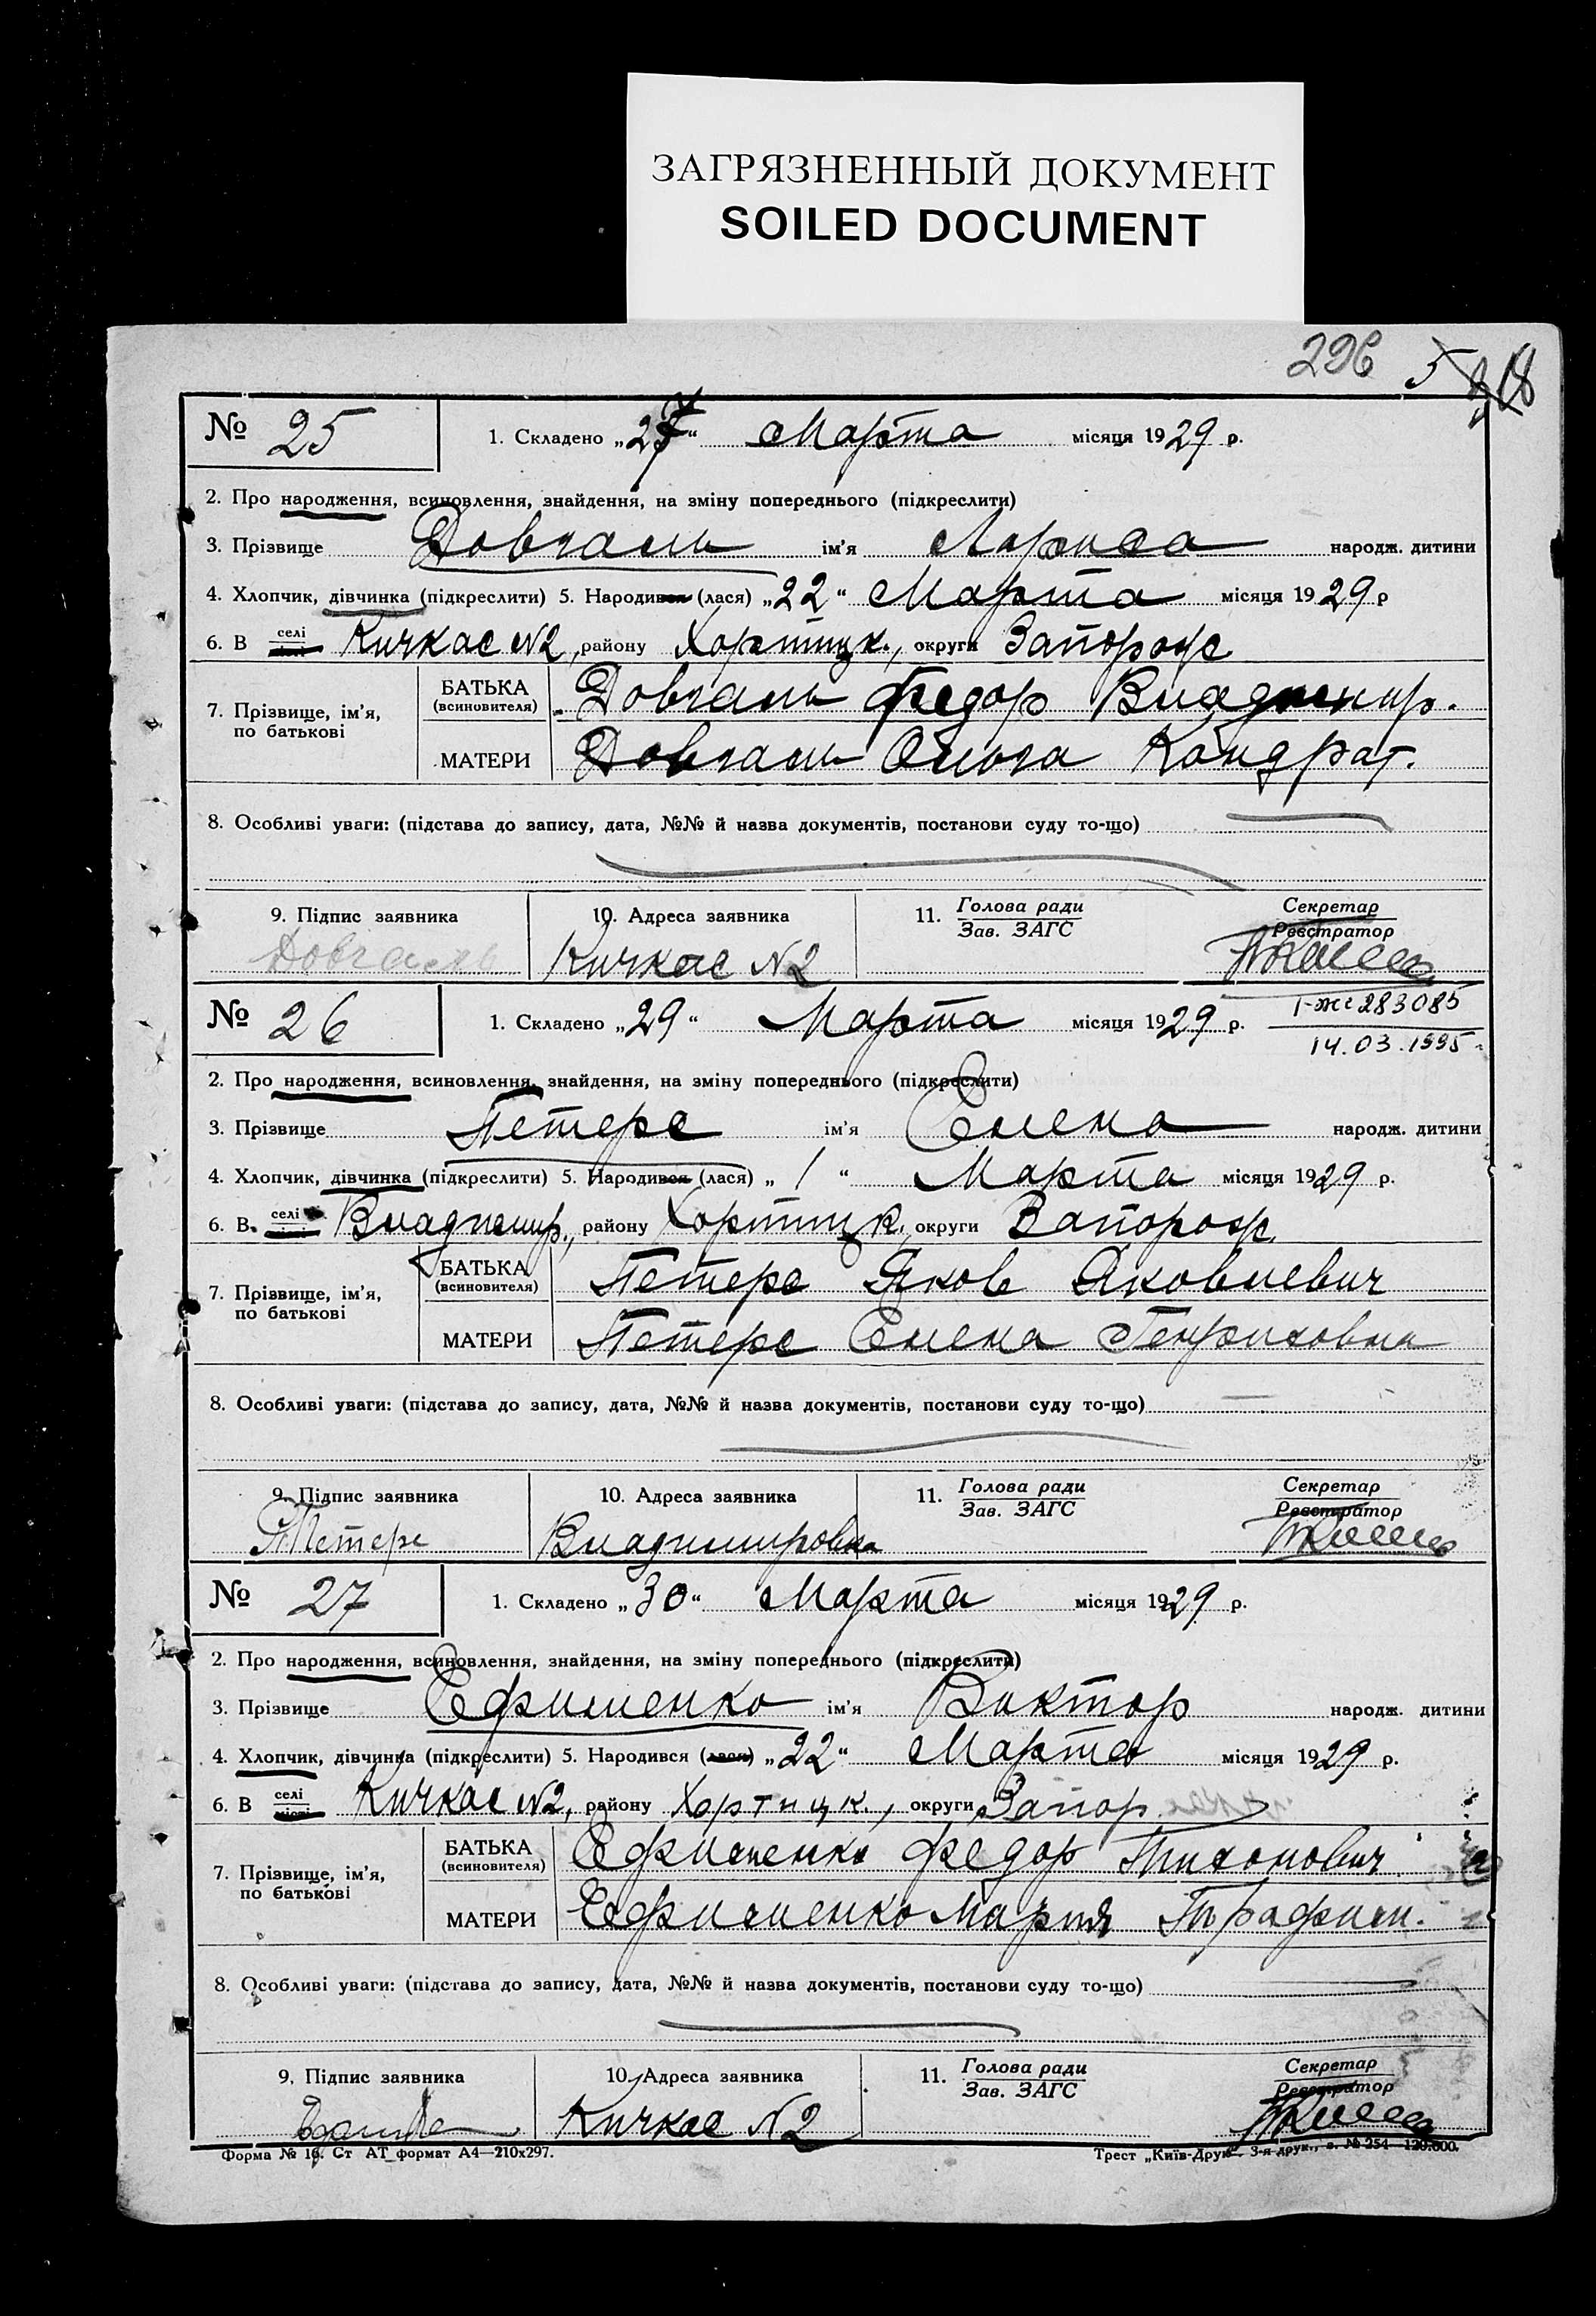 ЗАГРЯЗНЕННЫЙ ДОКУМЕНТ
SOILED DOCUMENT
296 5 18
№ 25 1. Складено „27“ Марта місяця 1929 р.
2. Про народження, всиновлення, знайдення, на зміну попереднього (підкреслити)
3. Прізвище Довгаль ім'я Лариса народж. дитини
4. Хлопчик, дівчинка (підкреслити) 5. Народився (лася) „22“ Марта місяця 1929 р
6. В селі Кичкас №2, району Хортицк., округи Запорож
7. Прізвище, ім'я, по батькові БАТЬКА (всиновителя) Довгаль Федор Владимир.
МАТЕРИ Довгаль Ольга Кондрат.
8. Особливі уваги: (підстава до запису, дата, №№ й назва документів, постанови суду то-що)
9. Підпис заявника 10. Адреса заявника 11. Голова ради Секретар
Зав. ЗАГС Реєстратор
Довгаль Кичкас №2
№ 26 1. Складено „29“ Марта місяця 1929 р. I-жс 283085
14.03.1995
2. Про народження, всиновлення, знайдення, на зміну попереднього (підкреслити)
3. Прізвище Петерс ім'я Елена народж. дитини
4. Хлопчик, дівчинка (підкреслити) 5. Народився (лася) „1“ Марта місяця 1929 р.
6. В селі Владимир., району Хортицк., округи Запорож.
7. Прізвище, ім'я, по батькові БАТЬКА (всиновителя) Петерс Яков Яковлевич
МАТЕРИ Петерс Елена Генриховна
8. Особливі уваги: (підстава до запису, дата, №№ й назва документів, постанови суду то-що)
9. Підпис заявника 10. Адреса заявника 11. Голова ради Секретар
Зав. ЗАГС Реєстратор
Петерс Владимировка
№ 27 1. Складено „30“ Марта місяця 1929 р.
2. Про народження, всиновлення, знайдення, на зміну попереднього (підкреслити)
3. Прізвище Ефименко ім'я Виктор народж. дитини
4. Хлопчик, дівчинка (підкреслити) 5. Народився (лася) „22“ Марта місяця 1929 р.
6. В селі місті Кичкас №2, району Хортицк., округи Запор
7. Прізвище, ім'я, по батькові БАТЬКА (всиновителя) Ефименко Федор Тихонович
МАТЕРИ Ефименко Мария Трафим.
8. Особливі уваги: (підстава до запису, дата, №№ й назва документів, постанови суду то-що)
9. Підпис заявника 10. Адреса заявника 11. Голова ради Секретар
Зав. ЗАГС Реєстратор
Кичкас №2
Форма № 16. Ст АТ формат А4—210х297. Трест „Київ-Друк“. 3-я друк., з. № 254—120.000.